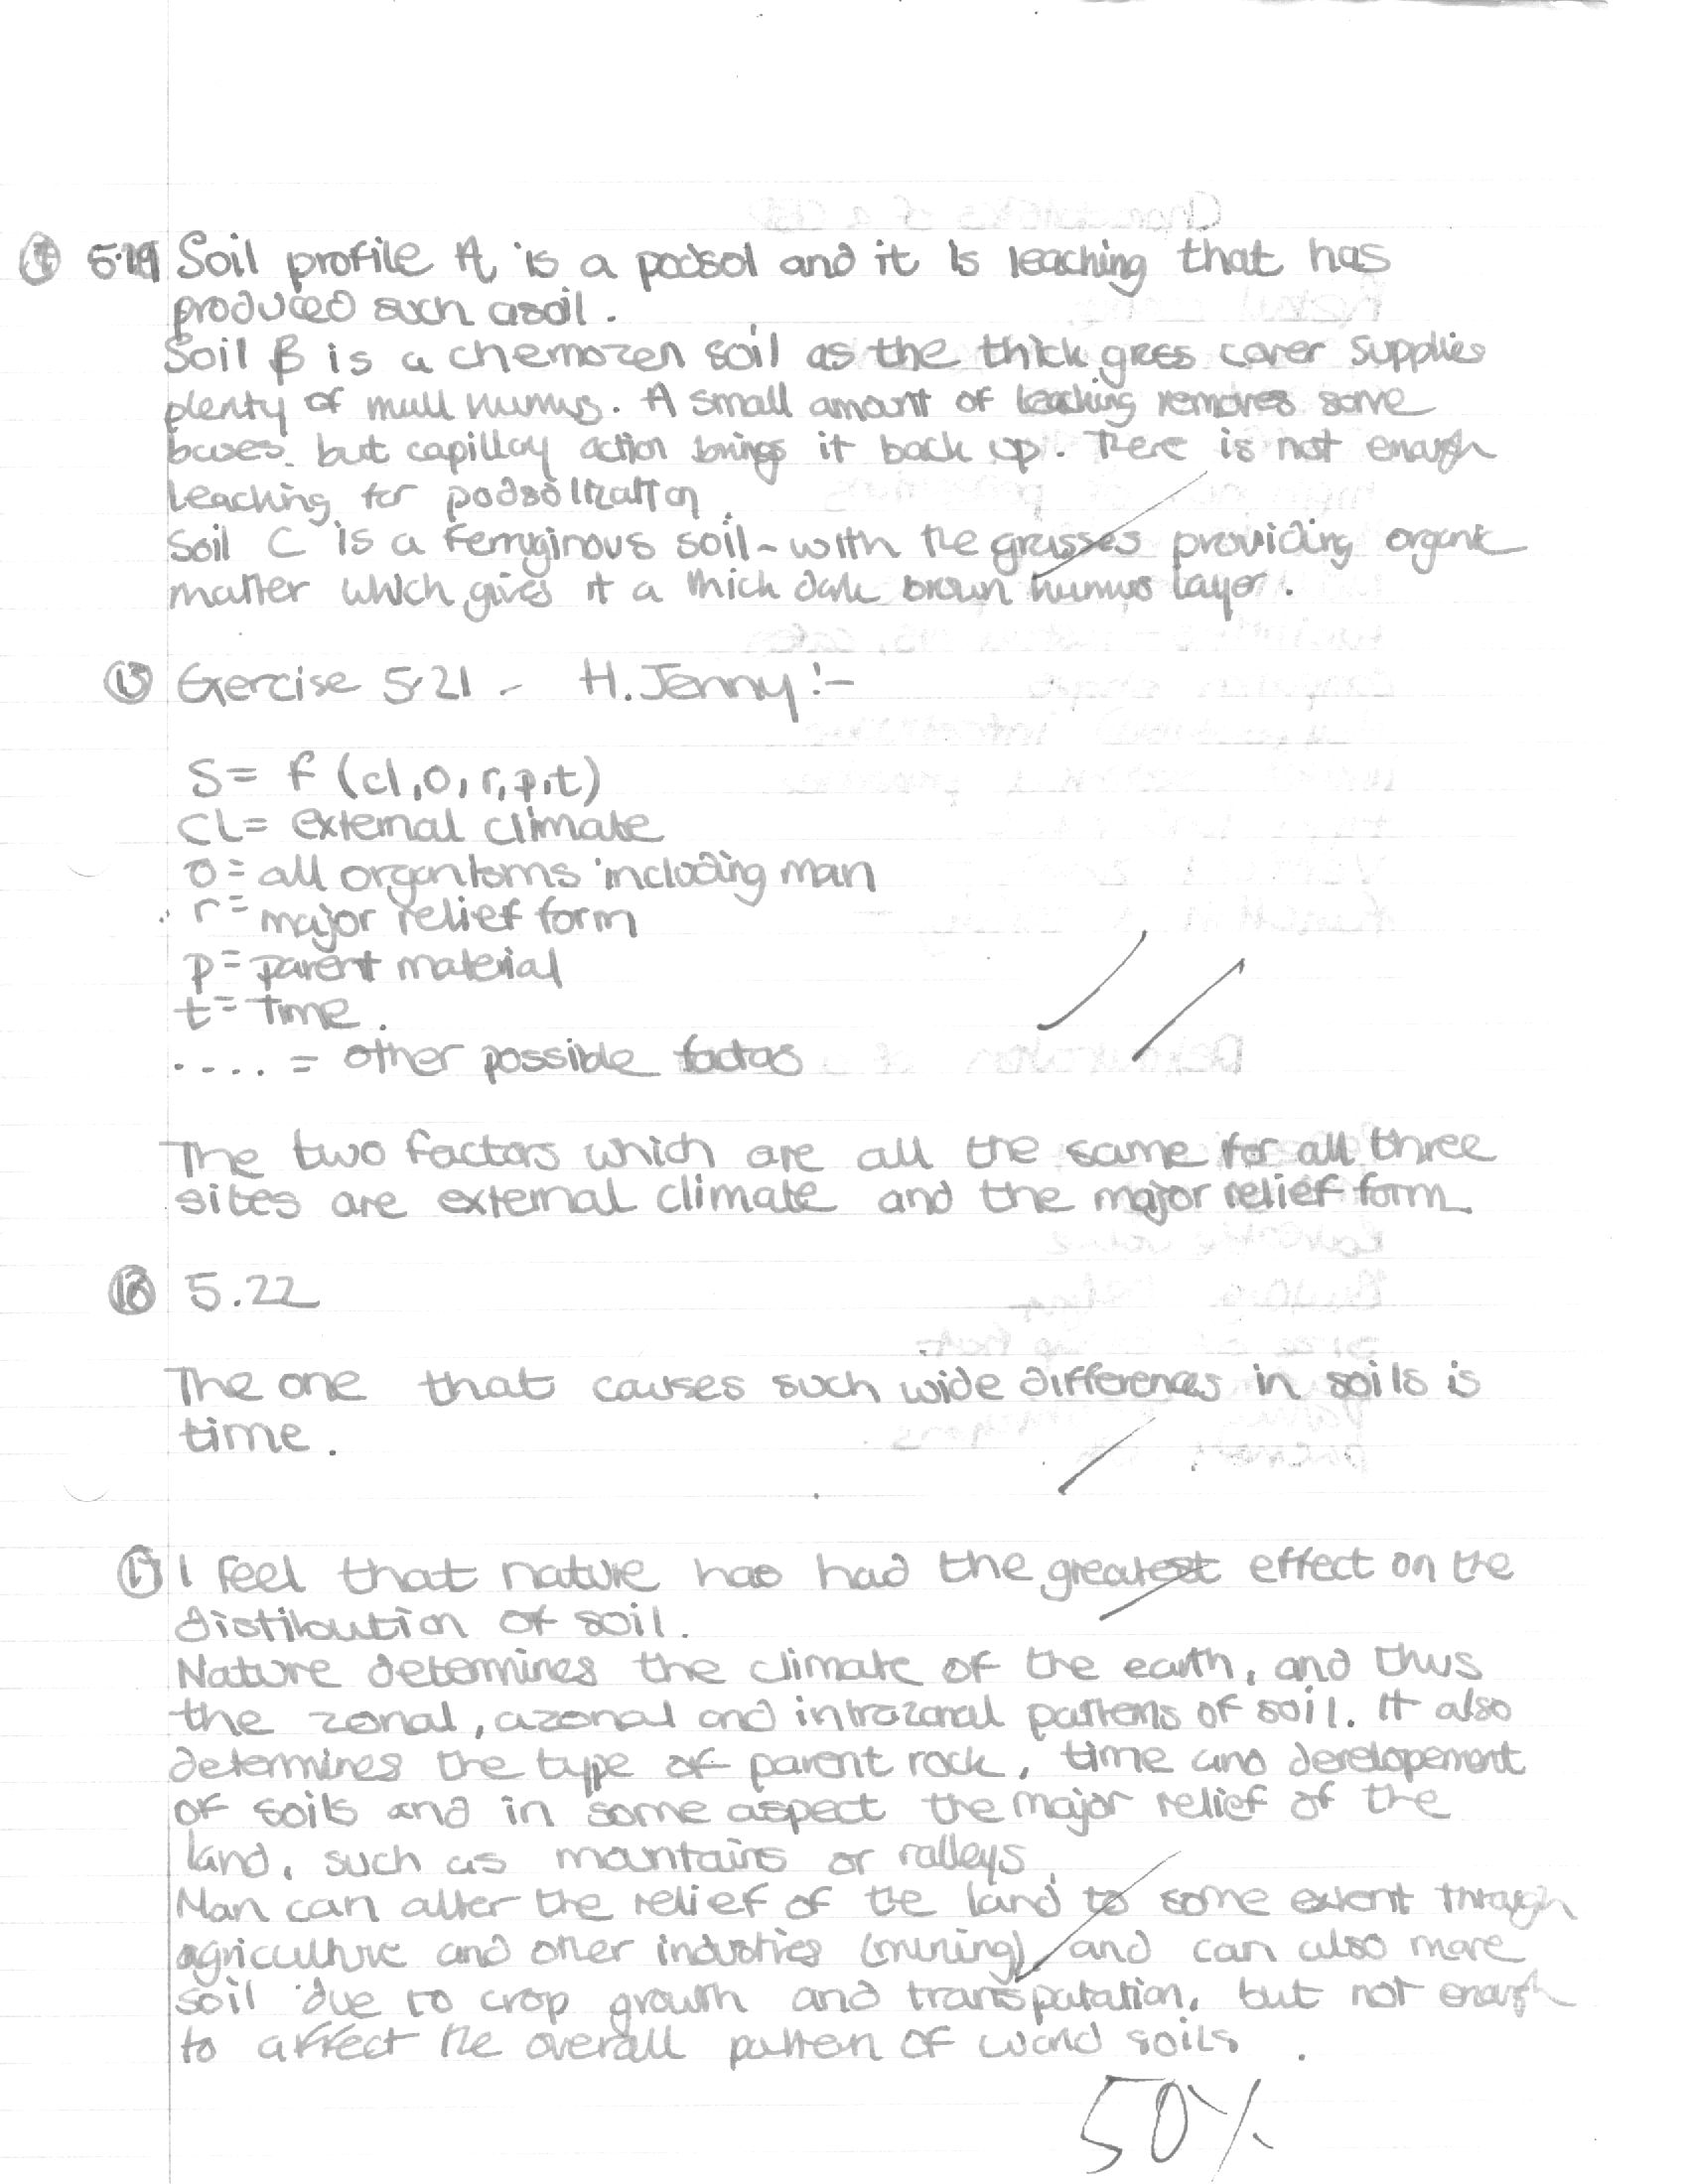 5.19 Soil profile A is a podsol and it is leaching that has
produced such a soil.
Soil B is a chemozen soil as the thick grass cover supplies
plenty of mull humus. A small amount of leaching removes some
bases but capillay action brings it back up. There is not enough
leaching for podsolization.
Soil C is a ferruginous soil - with the grasses providing organic
matter which gives it a thick dark brown humus layer.
15 Exercise 5.21 - H. Jenny :-
S = f (cl, o, r, p, t)
CL = external climate
o = all organisms including man
r = major relief form
p = parent material
t = Time.
.... = other possible factors
The two factors which are all the same for all three
sites are external climate and the major relief form.
16 5.22
The one that causes such wide differences in soils is
time.
17 I feel that nature has had the greatest effect on the
distibution of soil.
Nature determines the climate of the earth, and thus
the zonal, azonal and intrazonal patterns of soil. It also
determines the type of parent rock, time and developement
of soils and in some aspect the major relief of the
land, such as mountains or valleys.
Man can alter the relief of the land to some extent through
agriculture and other industries (mining) and can also move
soil due to crop growth and transputation, but not enough
to affect the overall pattern of world soils.
50%